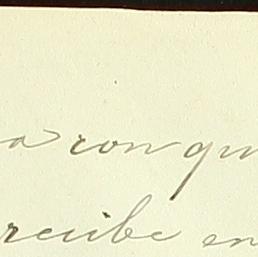 a con qu
recibe en